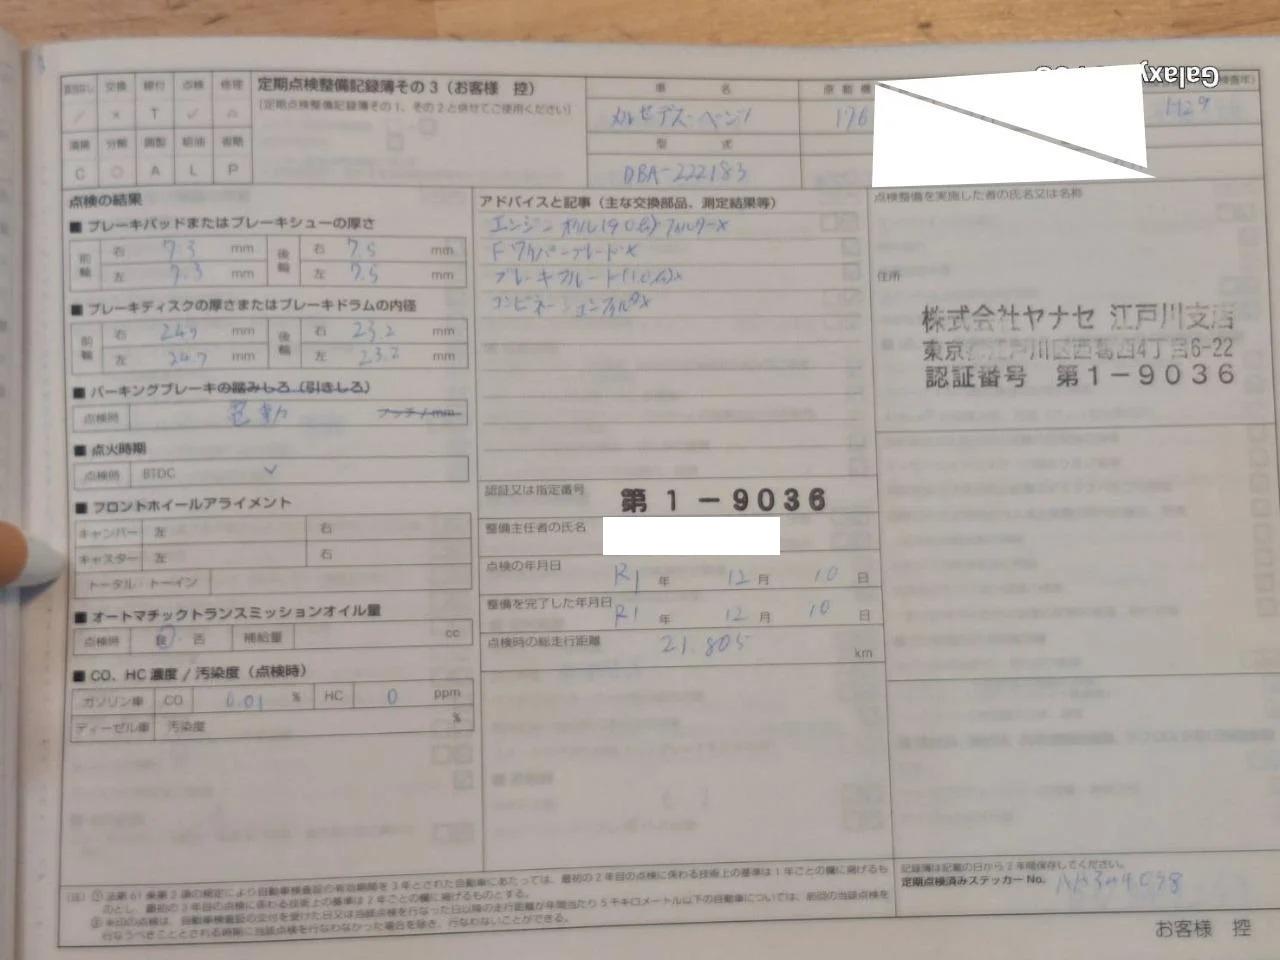 Galaxy
該当なし 交換 締付 点検 修理
／ × T ✓ △
清掃 分解 調整 給油 省略
C ○ A L P
定期点検整備記録簿その3（お客様 控）
(定期点検整備記録簿その1、その2と併せてご使用ください)
車 名
メルセデス・ベンツ
型 式
DBA-222183
原動機
176
H29
点検の結果
■ ブレーキパッドまたはブレーキシューの厚さ
前輪 右 7.3 mm 後輪 右 7.5 mm
左 7.3 mm 左 7.5 mm
■ ブレーキディスクの厚さまたはブレーキドラムの内径
前輪 右 24.7 mm 後輪 右 23.2 mm
左 24.7 mm 左 23.2 mm
■ パーキングブレーキの踏みしろ（引きしろ）
点検時 電動 ノッチ/mm
■ 点火時期
点検時 BTDC ✓
■ フロントホイールアライメント
キャンバー 左 右
キャスター 左 右
トータル・トーイン
■ オートマチックトランスミッションオイル量
点検時 良・否 補給量 cc
■ CO、HC 濃度 / 汚染度（点検時）
ガソリン車 CO 0.01 % HC 0 ppm
ディーゼル車 汚染度 %
アドバイスと記事（主な交換部品、測定結果等）
エンジンオイル(9.0ℓ)フィルター×
Fワイパーブレード×
ブレーキフルード(1.0ℓ)×
コンビネーションフィルタ×
認証又は指定番号 第1－9036
整備主任者の氏名
点検の年月日 R1 年 12 月 10 日
整備を完了した年月日 R1 年 12 月 10 日
点検時の総走行距離 21.805 km
点検整備を実施した者の氏名又は名称
住所
株式会社ヤナセ 江戸川支店
東京都江戸川区西葛西4丁目6-22
認証番号 第1－9036
(注) ① 法第61条第2項の規定により自動車検査証の有効期間を3年とされた自動車にあたっては、最初の2年目の点検に係わる技術上の基準は1年ごとの欄に掲げるも
のとし、最初の3年目の点検に係わる技術上の基準は2年ごとの欄に掲げるものとする。
② ※印の点検は、自動車検査証の交付を受けた日又は当該点検を行なった日以降の走行距離が年間当たり5千キロメートル以下の自動車については、前回の当該点検を
行なうべきこととされる時期に当該点検を行なわなかった場合を除き、行なわないことができる。
記録簿は記載の日から2年間保存してください。
定期点検済みステッカーNo.
お客様 控